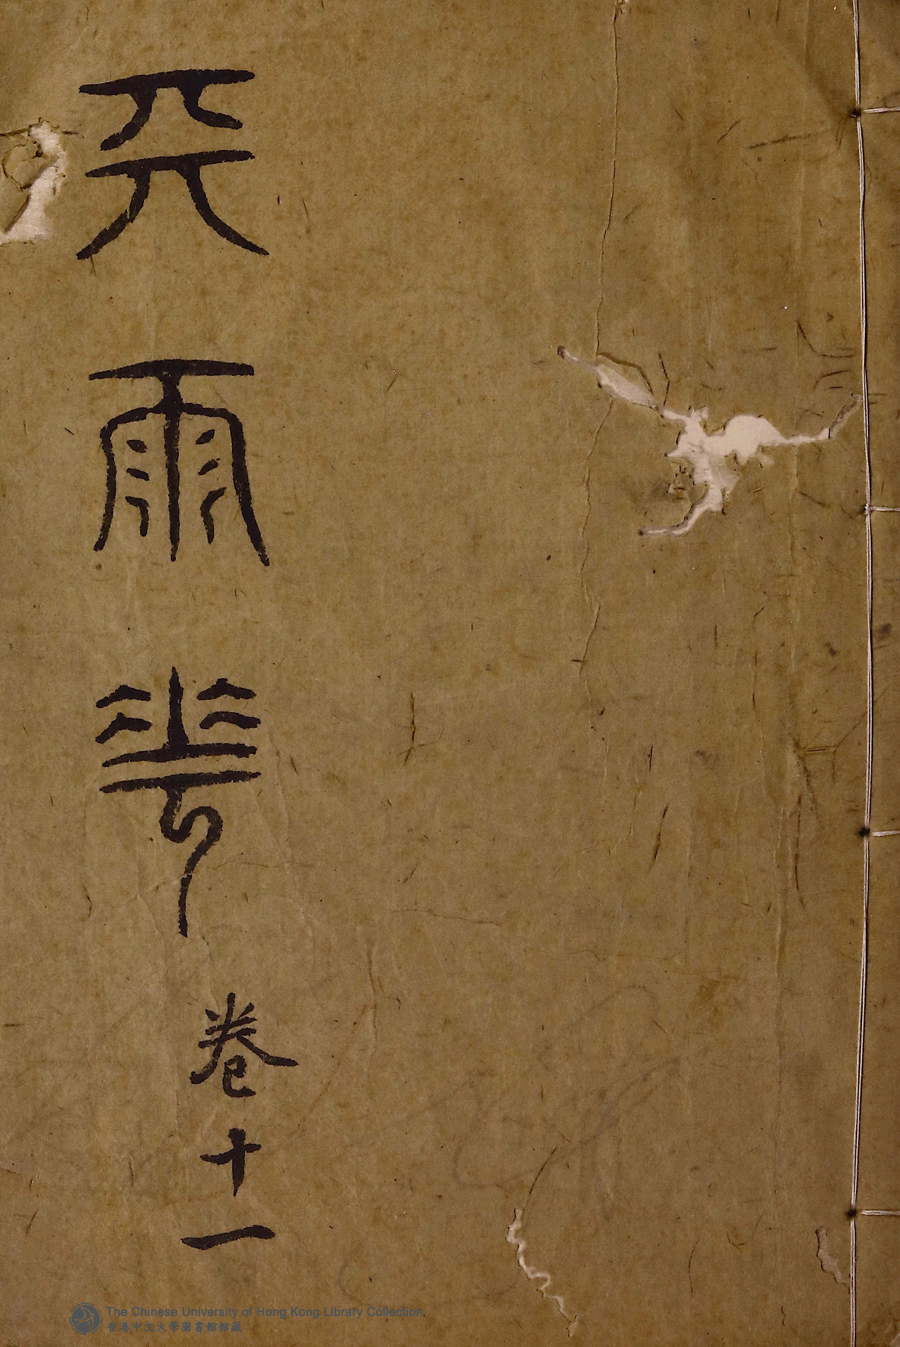 天雨花
卷十一
The Chinese University of Hong Kong Library Collection.
香港中文大學圖書館館藏